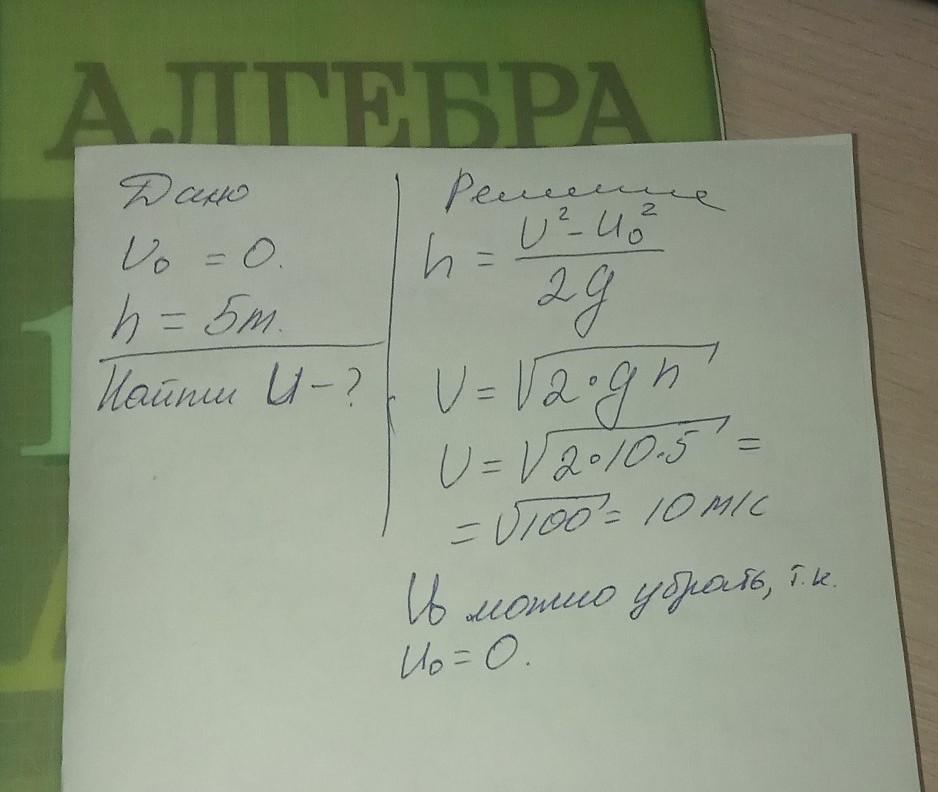 АЛГЕБРА
1
Дано
υ₀ = 0.
h = 5m.
Найти U - ?
Решение
h = (υ² - υ₀²) / 2g
υ = √(2·gh)
υ = √(2·10·5) =
= √100 = 10 м/с
υ₀ можно убрать, т.к.
υ₀ = 0.